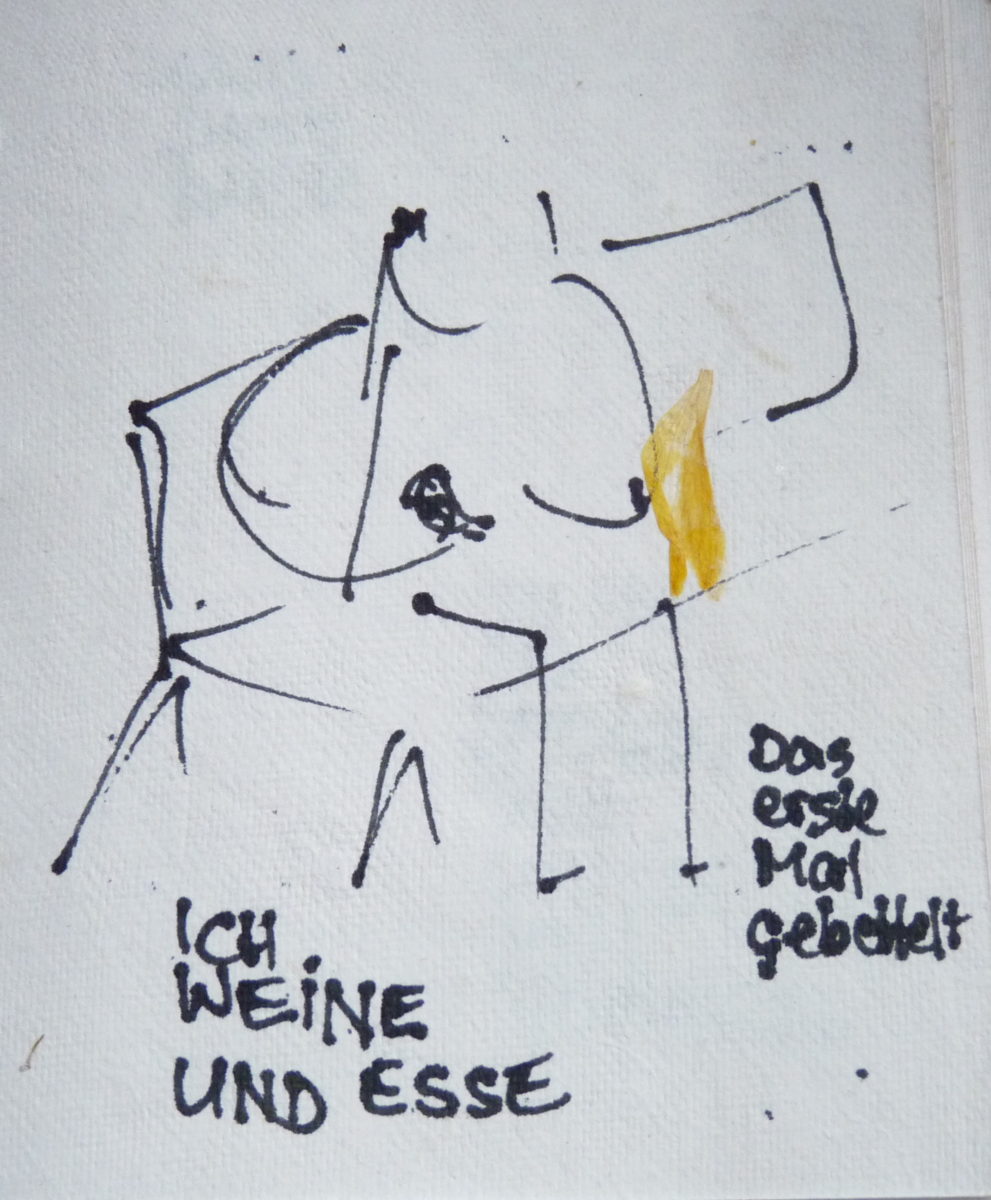 Das
erste
Mal
gebettelt
ICH
WEINE
UND ESSE